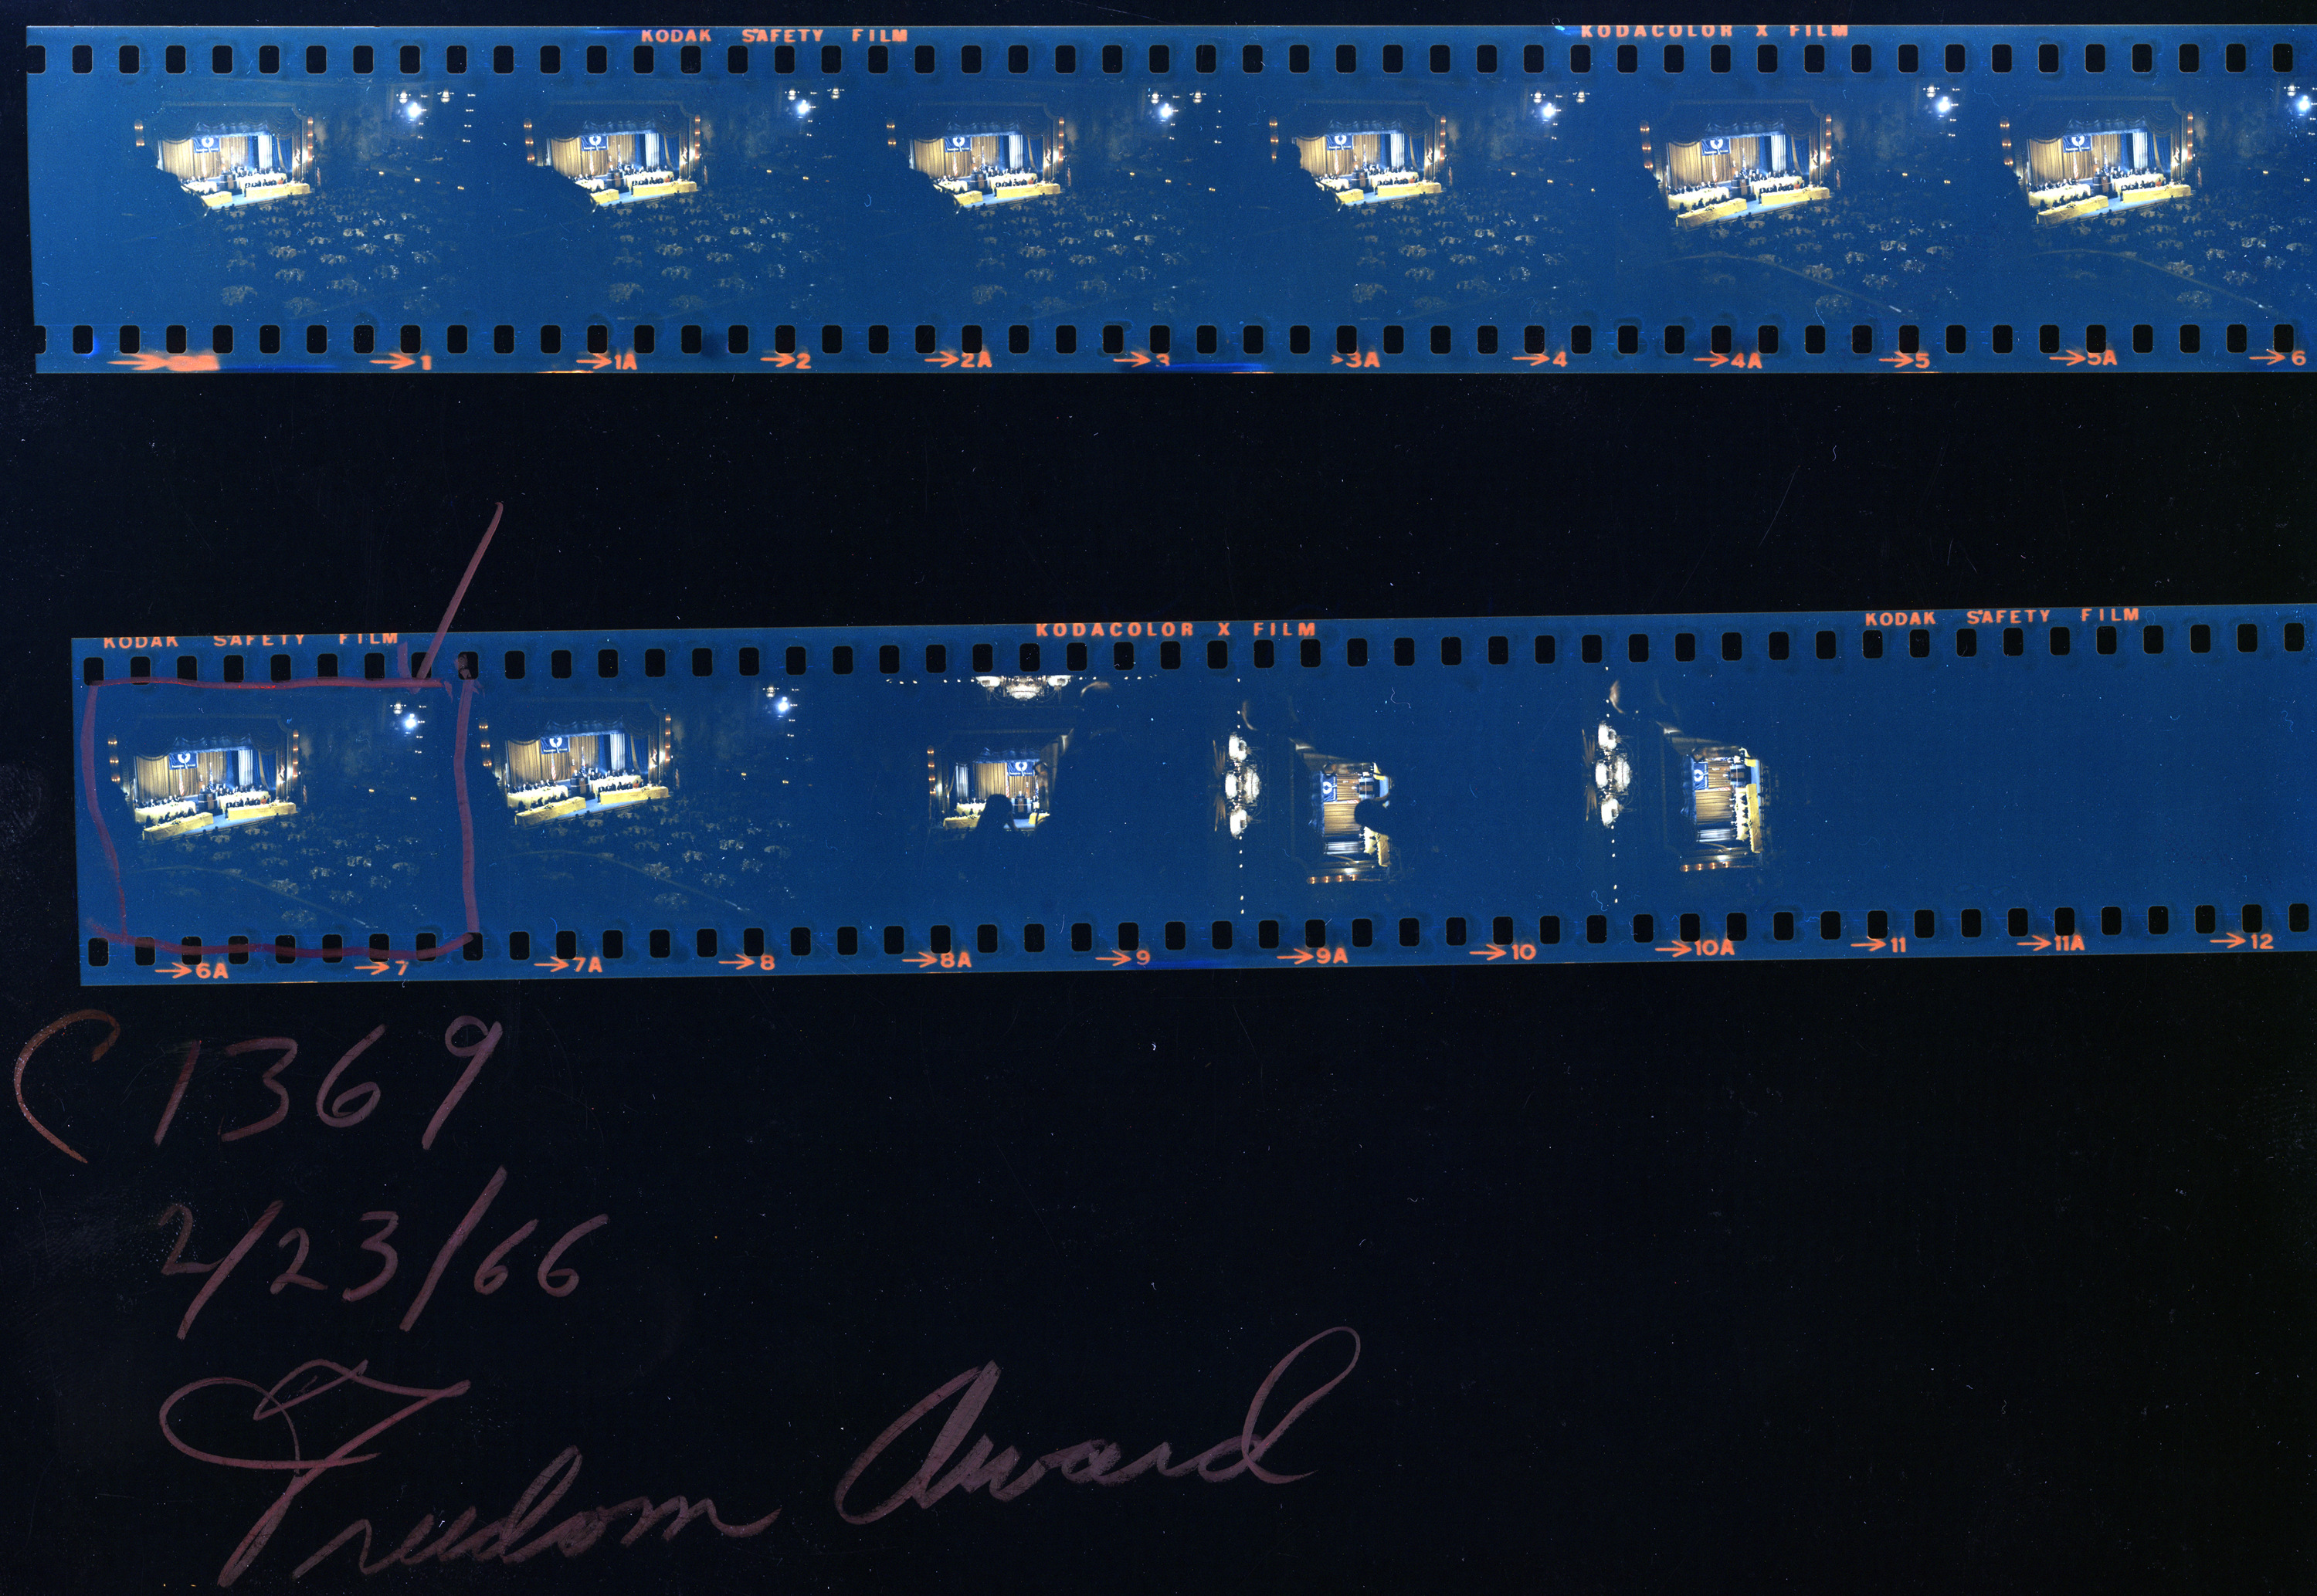 KODAK SAFETY FILM KODACOLOR X FILM
→1 →1A →2 →2A →3 →3A →4 →4A →5 →5A →6
KODAK SAFETY FILM KODACOLOR X FILM KODAK SAFETY FILM
→6A →7 →7A →8 →8A →9 →9A →10 →10A →11 →11A →12
C 1369
2/23/66
Freedom Award